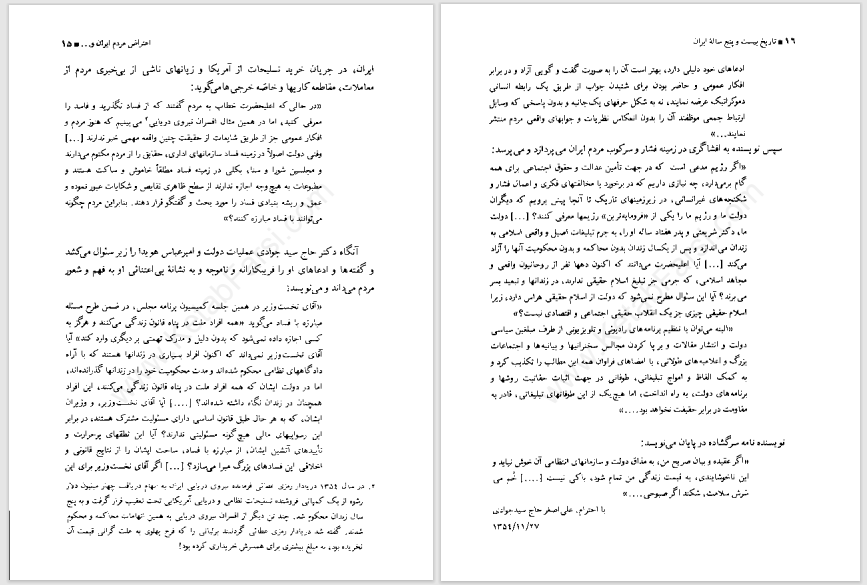 اعتراض مردم ایران و... ■ ۱۵
ایران، در جریان خرید تسلیحات از آمریکا و زیانهای ناشی از بی‌خبری مردم از
معاملات، مقاطعه کاریها و خاصّه خرجی‌ها می‌گوید:
«در حالی که اعلیحضرت خطاب به مردم گفتند که از فساد نگذرید و فاسد را
معرفی کنید، اما در همین مثال افسران نیروی دریایی۲ می‌بینیم که هنوز مردم و
افکار عمومی جز از طریق شایعات از حقیقت چنین واقعه مهمی خبر ندارند [...]
وقتی دولت اصولاً در زمینه فساد سازمانهای اداری، حقایق را از مردم مکتوم می‌دارند
و مجلسین شورا و سنا، بکلی در زمینه فساد مطلقاً خاموش و ساکت هستند و
مطبوعات به هیچ‌وجه اجازه ندارند از سطح ظاهری نقایص و شکایات عبور نموده و
عمق و ریشه بنیادی فساد را مورد بحث و گفتگو قرار دهند. بنابراین مردم چگونه
می‌توانند با فساد مبارزه کنند؟»
آنگاه دکتر حاج سید جوادی عملیات دولت و امیرعباس هویدا را زیر سئوال می‌کشد
و گفته‌ها و ادعاهای او را فریبکارانه و ناموجه و به نشانهٔ بی‌اعتنائی او به فهم و شعور
مردم می‌داند و می‌نویسد:
«آقای نخست‌وزیر در همین جلسه کمیسیون برنامه مجلس، در ضمن طرح مسئله
مبارزه با فساد می‌گوید «همه افراد ملت در پناه قانون زندگی می‌کنند و هرگز به
کسی اجازه داده نمی‌شود که بدون دلیل و مدرک تهمتی بر دیگری وارد کند» آیا
آقای نخست‌وزیر نمی‌داند که اکنون افراد بسیاری در زندانها هستند که با آراء
دادگاههای نظامی محکوم شده‌اند و مدت محکومیت خود را در زندانها گذرانده‌اند،
اما در دولت ایشان که همه افراد ملت در پناه قانون زندگی می‌کنند، این افراد
همچنان در زندان نگاه داشته شده‌اند؟ [....] آیا آقای نخست‌وزیر، و وزیران
ایشان، که به هر حال طبق قانون اساسی دارای مسئولیت مشترک هستند، در برابر
این رسواییهای مالی هیچ‌گونه مسئولیتی ندارند؟ آیا این نطقهای پرحرارت و
تأییدهای آتشین ایشان، از مبارزه با فساد، ساحت ایشان را از نتایج قانونی و
اخلاقی این فسادهای بزرگ مبرا می‌سازد؟ [...] اگر آقای نخست‌وزیر برای این
۲. در سال ۱۳۵۴ دریادار رمزی عطائی فرمانده نیروی دریایی ایران به اتهام دریافت چهار میلیون دلار
رشوه از یک کمپانی فروشنده تسلیحات نظامی و دریایی آمریکایی تحت تعقیب قرار گرفت و به پنج
سال زندان محکوم شد. چند تن دیگر از افسران نیروی دریایی به همین اتهامات محاکمه و محکوم
شدند. گفته شد دریادار رمزی عطائی گردنبند برلیانی را که فرح پهلوی به علت گرانی قیمت آن
نخریده بود، به مبلغ بیشتری برای همسرش خریداری کرده بود!
۱۶ ■ تاریخ بیست و پنج سالهٔ ایران
ادعاهای خود دلیلی دارد، بهتر است آن را به صورت گفت و گویی آزاد و در برابر
افکار عمومی و حاضر بودن برای شنیدن جواب از طریق یک رابطه انسانی
دموکراتیک عرضه نمایند، نه به شکل حرفهای یک‌جانبه و بدون پاسخی که وسایل
ارتباط جمعی موظفند آن را بدون انعکاس نظریات و جوابهای واقعی مردم منتشر
نمایند...»
سپس نویسنده به افشاگری در زمینه فشار و سرکوب مردم ایران می‌پردازد و می‌پرسد:
«اگر رژیم مدعی است که در جهت تأمین عدالت و حقوق اجتماعی برای همه
گام برمی‌دارد، چه نیازی داریم که در برخورد با مخالفتهای فکری و اعمال فشار و
شکنجه‌های غیرانسانی، در زیرزمینهای تاریک تا آنجا پیش برویم که دیگران
دولت ما و رژیم ما را یکی از «فرومایه‌ترین» رژیمها معرفی کنند؟ [...] دولت
ما، دکتر شریعتی و پدر هفتاد ساله او را، به جرم تبلیغات اصیل و واقعی اسلامی به
زندان می‌اندازد و پس از یکسال زندان بدون محاکمه و بدون محکومیت آنها را آزاد
می‌کند [...] آیا اعلیحضرت می‌دانند که اکنون دهها نفر از روحانیون واقعی و
مجاهد اسلامی، که جرمی جز تبلیغ اسلام حقیقی ندارند، در زندانها و تبعید بسر
می‌برند؟ آیا این سئوال مطرح نمی‌شود که دولت از اسلام حقیقی هراس دارد، زیرا
اسلام حقیقی چیزی جز یک انقلاب حقیقی اجتماعی و اقتصادی نیست؟»
«البته می‌توان با تنظیم برنامه‌های رادیوئی و تلویزیونی از طرف مبلغین سیاسی
دولت و انتشار مقالات و بر پا کردن مجالس سخنرانیها و بیانیه‌ها و اجتماعات
بزرگ و اعلامیه‌های طولانی، با امضاهای فراوان همه این مطالب را تکذیب کرد و
به کمک الفاظ و امواج تبلیغاتی، طوفانی در جهت اثبات حقانیت روشها و
برنامه‌های دولت، به راه انداخت، اما هیچ‌یک از این طوفانهای تبلیغاتی، قادر به
مقاومت در برابر حقیقت نخواهد بود....»
نویسنده نامه سرگشاده در پایان می‌نویسد:
«اگر عقیده و بیان صریح من، به مذاق دولت و سازمانهای انتظامی آن خوش نیاید و
این ناخوشایندی، به قیمت زندگی من تمام شود، باکی نیست [....] خُم می
سرش سلامت، شکند اگر صبوحی....»
با احترام، علی اصغر حاج سیدجوادی
۱۳۵۴/۱۱/۲۷